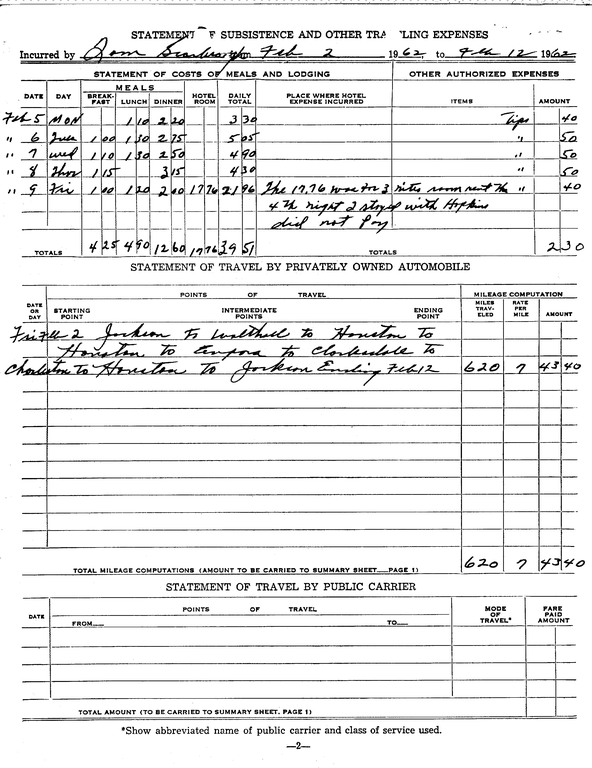 STATEMENT OF SUBSISTENCE AND OTHER TRA LING EXPENSES
Incurred by Tom Scarbrough on Feb 2 1962, to Feb 12 1962
STATEMENT OF COSTS OF MEALS AND LODGING OTHER AUTHORIZED EXPENSES
MEALS
DATE DAY BREAK-FAST LUNCH DINNER HOTEL ROOM DAILY TOTAL PLACE WHERE HOTEL EXPENSE INCURRED ITEMS AMOUNT
Feb 5 MON 1 10 2 20 3 30 Tips 40
" 6 Tues 1 00 1 30 2 75 5 05 " 50
" 7 Wed 1 10 1 30 2 50 4 90 " 50
" 8 Thur 1 15 3 15 4 30 " 50
" 9 Fri 1 00 1 20 2 00 17 76 21 96 The 17.76 was for 3 nites room rent the " 40
4th night I stayed with Hopkins
did not pay
TOTALS 4 25 4 90 12 60 17 76 39 51 TOTALS 2 30
STATEMENT OF TRAVEL BY PRIVATELY OWNED AUTOMOBILE
POINTS OF TRAVEL MILEAGE COMPUTATION
DATE OR DAY STARTING POINT INTERMEDIATE POINTS ENDING POINT MILES TRAV-ELED RATE PER MILE AMOUNT
Fri Feb 2 Jackson to Walthall to Houston to
Houston to Eupora to Clarksdale to
Charleston to Houston to Jackson Ending Feb 12 620 7 43 40
TOTAL MILEAGE COMPUTATIONS (AMOUNT TO BE CARRIED TO SUMMARY SHEET PAGE 1) 620 7 43 40
STATEMENT OF TRAVEL BY PUBLIC CARRIER
DATE POINTS OF TRAVEL MODE OF TRAVEL* FARE PAID AMOUNT
FROM TO
TOTAL AMOUNT (TO BE CARRIED TO SUMMARY SHEET. PAGE 1)
*Show abbreviated name of public carrier and class of service used.
—2—